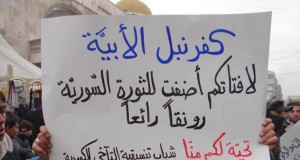 كفرنبل الأبيّة
لافتاتكم أضفت للثورة السّوريّة
رونقاً رائعاً
تحيّة لكم منّا شباب تنسيقية التآخي الكوردية